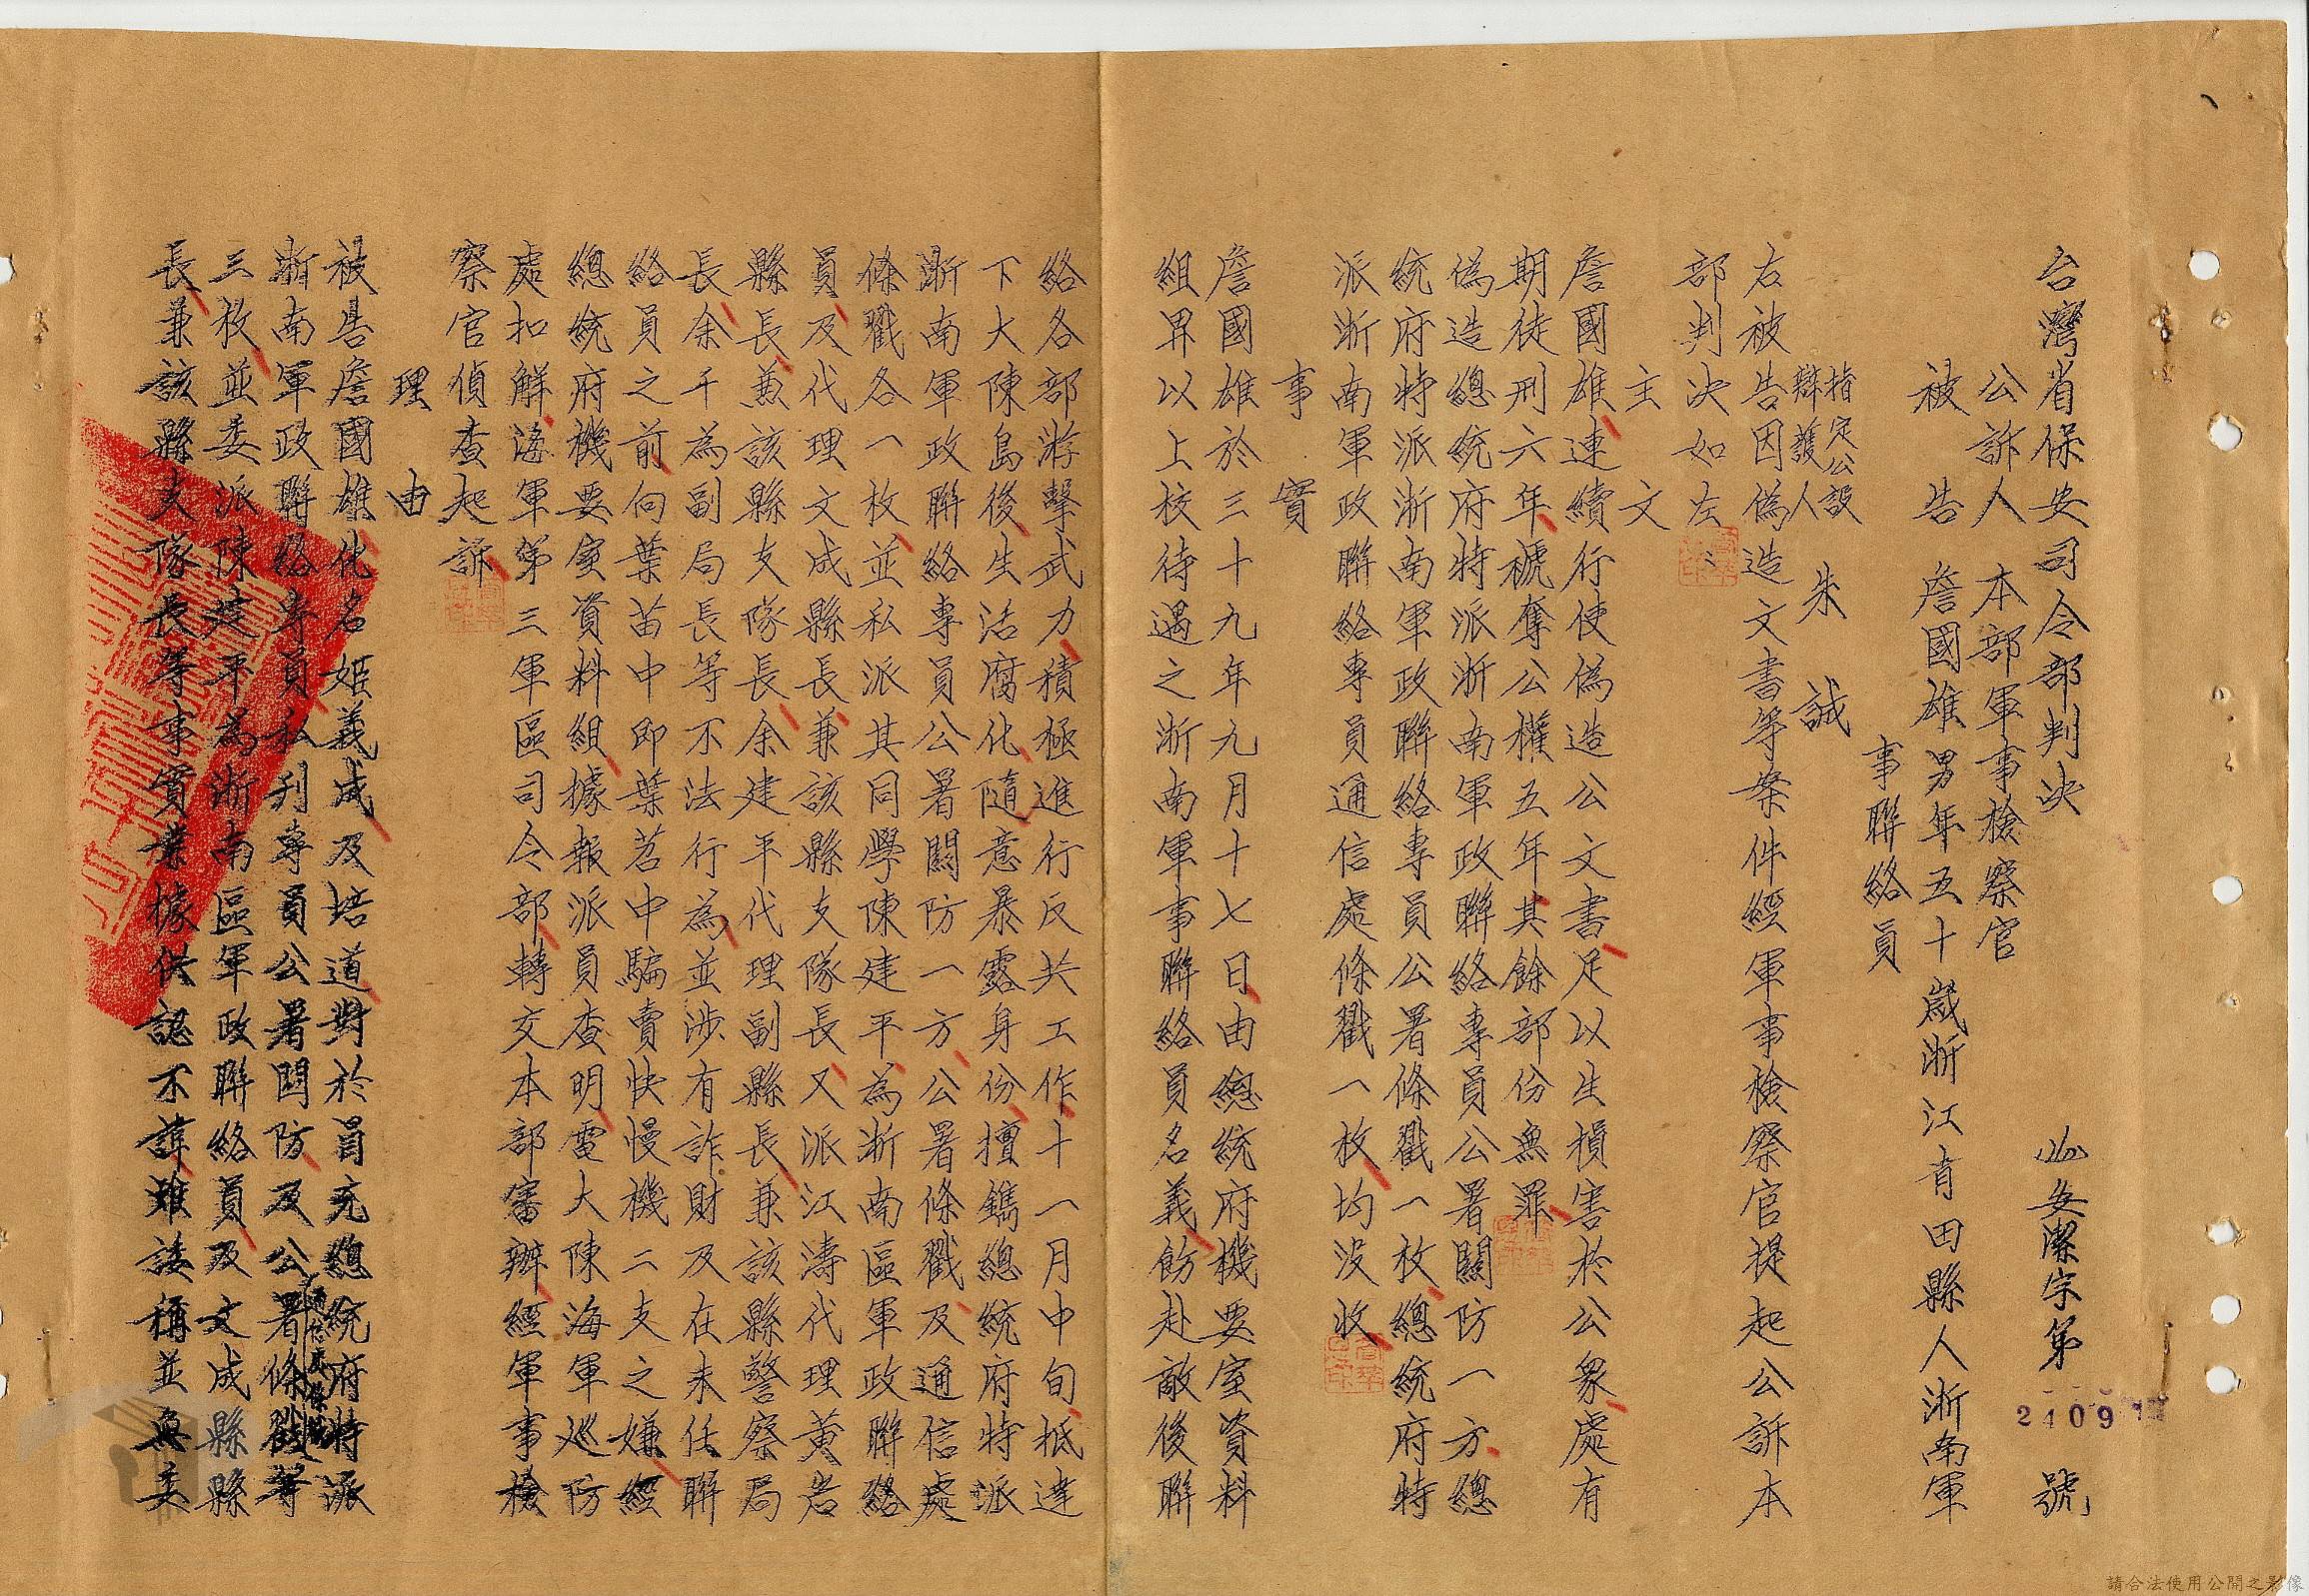 台灣省保安司令部判決
安潔字第 2409 號
公訴人 本部軍事檢察官
被告 詹國雄 男年五十歲浙江青田縣人浙南軍
事聯絡員
指定公設
辯護人 朱誠
右被告因偽造文書等案件經軍事檢察官提起公訴本
部判決如左：
主文
詹國雄連續行使偽造公文書足以生損害於公眾處有
期徒刑六年褫奪公權五年其餘部份無罪
偽造總統府特派浙南軍政聯絡專員公署關防一方總
統府特派浙南軍政聯絡專員公署條戳一枚總統府特
派浙南軍政聯絡專員通信處條戳一枚均沒收
事實
詹國雄於三十九年九月十七日由總統府機要室資料
組畀以上校待遇之浙南軍事聯絡員名義飭赴敵後聯
絡各部游擊武力積極進行反共工作十一月中旬抵達
下大陳島後生活腐化隨意暴露身份擅鐫總統府特派
浙南軍政聯絡專員公署關防一方公署條戳及通信處
條戳各一枚並私派其同學陳建平為浙南區軍政聯絡
員及代理文成縣長兼該縣支隊長又派江濤代理黃岩
縣長兼該縣支隊長余建平代理副縣長兼該縣警察局
長余千為副局長等不法行為並涉有詐財及在未任聯
絡員之前向葉苗中即葉茗中騙賣快慢機二支之嫌經
總統府機要室資料組據報派員查明電大陳海軍巡防
處扣解海軍第三軍區司令部轉交本部審辦經軍事檢
察官偵查起訴
理由
被告詹國雄化名姬義成及培道對於冒充總統府特派
浙南軍政聯絡專員私刊專員公署關防及公署條戳等
三枚並委派陳建平為浙南區軍政聯絡員及文成縣縣
長兼該縣支隊長等事實業據供認不諱雖諉稱並無委
請合法使用公開之影像